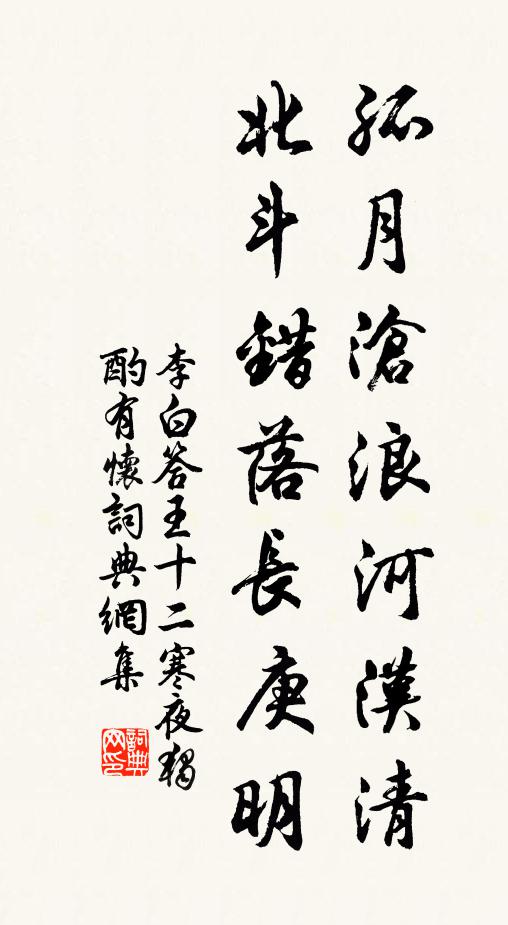 孤月滄浪河漢清
北斗錯落長庚明
李白答王十二寒夜獨
酌有懷詞典網集
詞典網印